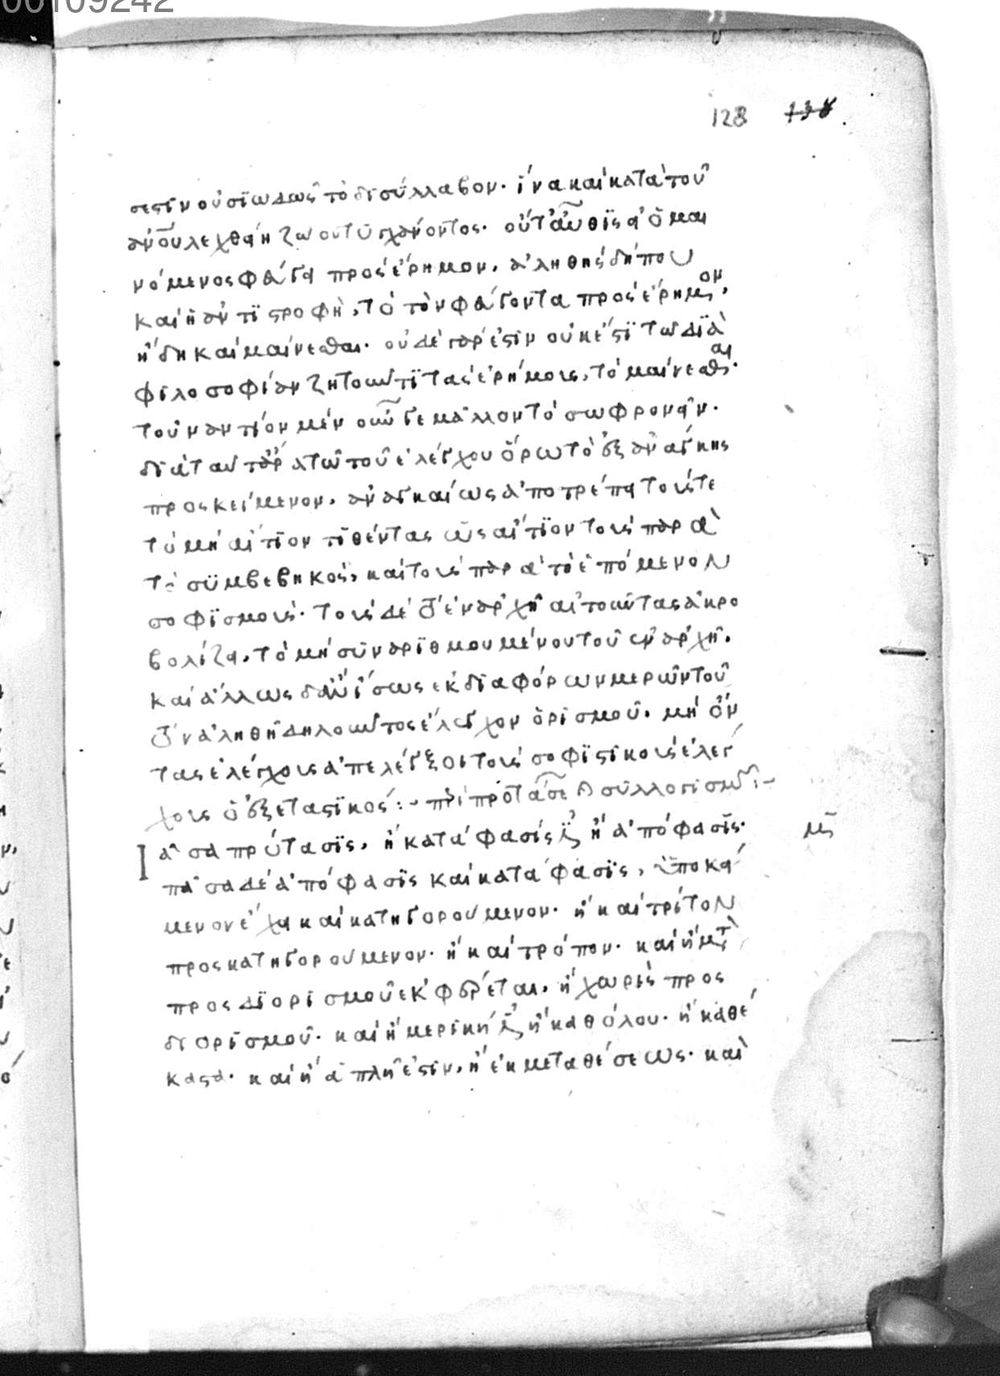 00109242
128 138
σεστιν οὐσιωδῶς τὸ δισύλλαβον· ἵνα καὶ κατὰ τοῦ
νόμενος φεύγει πρὸς ἔρημον, ἀληθὴς δήπου
καὶ ἡ ἀντιστροφὴ, τὸ τὸν φεύγοντα πρὸς ἔρημον,
ἤδη καὶ μαίνεσθαι· οὐδὲ γάρ ἐστιν οὐκ ἔστι τῷ διὰ
φιλοσοφίαν ζητοῦντι τὰς ἐρήμους, τὸ μαίνεσθαι·
τοὐναντίον μὲν οὖν γε μᾶλλον τὸ σωφρονεῖν·
διὰ ταῦτ' ἄρα τῷ τοῦ ἐλέγχου ὅρω τὸ ἐξ ἀνάγκης
προσκείμενον, ἀναγκαίως ἀποτρέπει τούς τε
τὸ μὴ αἴτιον τιθέντας ὡς αἴτιον τοὺς παρὰ
τὸ συμβεβηκός, καὶ τοὺς παρὰ τὸ ἑπόμενον
σοφισμούς· τοὺς δὲ τὸ ἐν ἀρχῆ αἰτοῦντας ἀκρο
βολίζει, τὸ μὴ συναριθμουμένου τοῦ ἐν ἀρχῆ,
καὶ ἄλλως δ' ἂν ἴσως ἐκ διαφόρων μερῶν τοῦ
τὸν ἀληθῆ δηλοῦντος ἔλεγχον ὁρισμοῦ, μὴ ὄν
τας ἐλέγχους ἀπελέγξοι τοὺς σοφιστικοὺς ἐλέγ
χους ὁ ἐξεταστικός :~ περὶ προτάσεως καὶ συλλογισμοῦ :~
Πᾶσα πρότασις, ἢ κατάφασίς ἐστιν ἢ ἀπόφασις·
πᾶσα δὲ ἀπόφασις καὶ κατάφασις, ὑποκεί
μενον ἔχει καὶ κατηγορούμενον· ἢ καὶ τρίτον
προσκατηγορούμενον· ἢ καὶ τρόπον· καὶ ἢ μετὰ
προσδιορισμοῦ ἐκφέρεται, ἢ χωρὶς προς
διορισμοῦ· καὶ ἢ μερική ἐστιν ἢ καθόλου· ἢ καθέ
καστα· καὶ ἢ ἁπλῆ ἐστὶν, ἢ ἐκ μεταθέσεως· καὶ